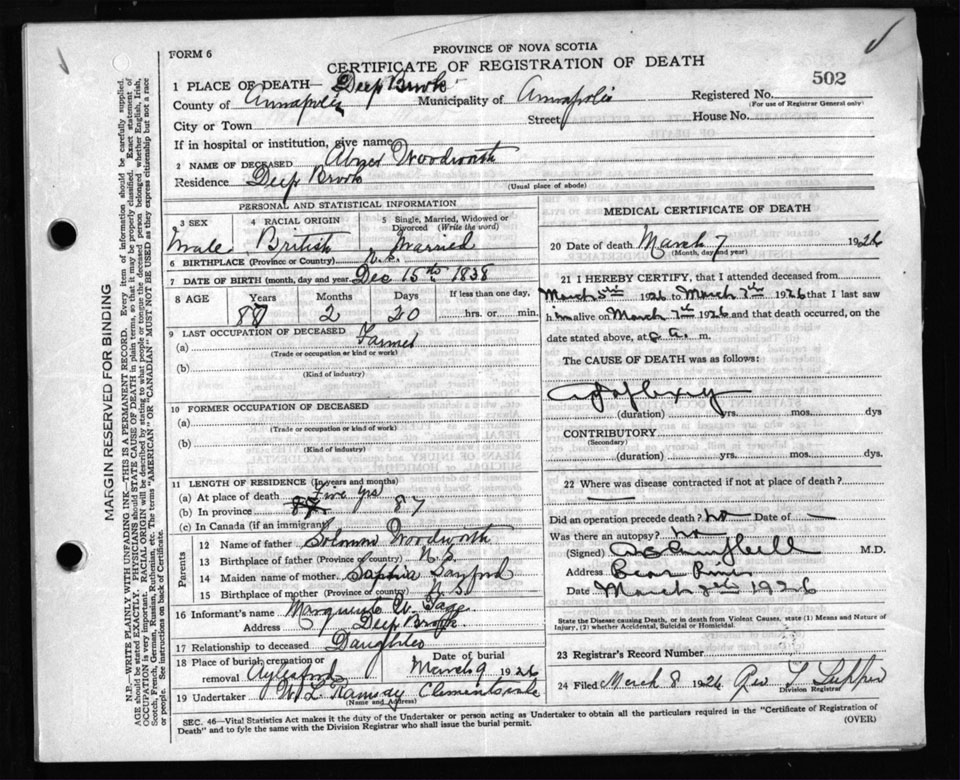 PROVINCE OF NOVA SCOTIA
FORM 6
CERTIFICATE OF REGISTRATION OF DEATH
502
1 PLACE OF DEATH— Deep Brook
County of Annapolis Municipality of Annapolis Registered No.
(For use of Registrar General only)
City or Town Street House No.
If in hospital or institution, give name
2 NAME OF DECEASED Abner Woodworth
Residence Deep Brook
(Usual place of abode)
PERSONAL AND STATISTICAL INFORMATION
3 SEX 4 RACIAL ORIGIN 5 Single, Married, Widowed or Divorced (Write the word)
Male British Married
6 BIRTHPLACE (Province or Country) N.S.
7 DATE OF BIRTH (month, day and year) Dec 15th 1838
8 AGE Years Months Days If less than one day,
87 2 20 hrs. or min.
9 LAST OCCUPATION OF DECEASED
(a) Farmer
(Trade or occupation or kind or work)
(b)
(Kind of industry)
10 FORMER OCCUPATION OF DECEASED
(a)
(Trade or occupation or kind of work)
(b)
(Kind of industry)
11 LENGTH OF RESIDENCE (In years and months)
(a) At place of death Five yrs
(b) In province 87
(c) In Canada (if an immigrant)
Parents
12 Name of father Solomon Woodworth
13 Birthplace of father (Province or country) N.S.
14 Maiden name of mother Sophia Sanford
15 Birthplace of mother (Province or country) N.S.
16 Informant's name Marguerite W.
Address Deep Brook
17 Relationship to deceased Daughter
18 Place of burial, cremation or removal Aylesford Date of burial March 9 1926
19 Undertaker W L Ramsay Clementsvale
(Name and Address)
MEDICAL CERTIFICATE OF DEATH
20 Date of death March 7 1926
(Month, day and year)
21 I HEREBY CERTIFY, that I attended deceased from
March 5th 1926 to March 7th 1926 that I last saw
him alive on March 7th 1926 and that death occurred, on the
date stated above, at a. m.
The CAUSE OF DEATH was as follows:
Apoplexy
(duration) yrs. mos. dys
CONTRIBUTORY
(Secondary)
(duration) yrs. mos. dys.
22 Where was disease contracted if not at place of death?
Did an operation precede death? no Date of —
Was there an autopsy? no
(Signed) Campbell M.D.
Address Bear River
Date March 1926
State the Disease causing Death, or in death from Violent Causes, state (1) Means and Nature of
Injury, (2) whether Accidental, Suicidal or Homicidal.
23 Registrar's Record Number
24 Filed March 8 1926 Geo
Division Registrar
SEC. 46—Vital Statistics Act makes it the duty of the Undertaker or person acting as Undertaker to obtain all the particulars required in the "Certificate of Registration of
Death" and to fyle the same with the Division Registrar who shall issue the burial permit.
(OVER)
MARGIN RESERVED FOR BINDING
N.B.—WRITE PLAINLY WITH UNFADING INK—THIS IS A PERMANENT RECORD. Every item of information should be carefully supplied.
AGE should be stated EXACTLY. PHYSICIANS should STATE CAUSE OF DEATH in plain terms, so that it may be properly classified. Exact statement of
OCCUPATION is very important. RACIAL ORIGIN will be described by stating to what people or tongue the deceased person belonged whether English, Irish,
Scotch, French, German, Russian, Ruthenian, etc. The terms "AMERICAN" OR "CANADIAN" MUST NOT BE USED as they express citizenship but not a race
or people. See instructions on back of Certificate.